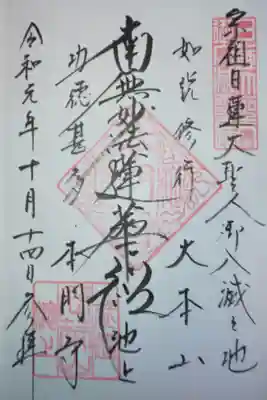 宗祖日蓮大聖人御入滅之地
如説修行 大本山
南無妙法蓮華経 池上
功徳甚多 本門寺
令和元年十月十四日参拝